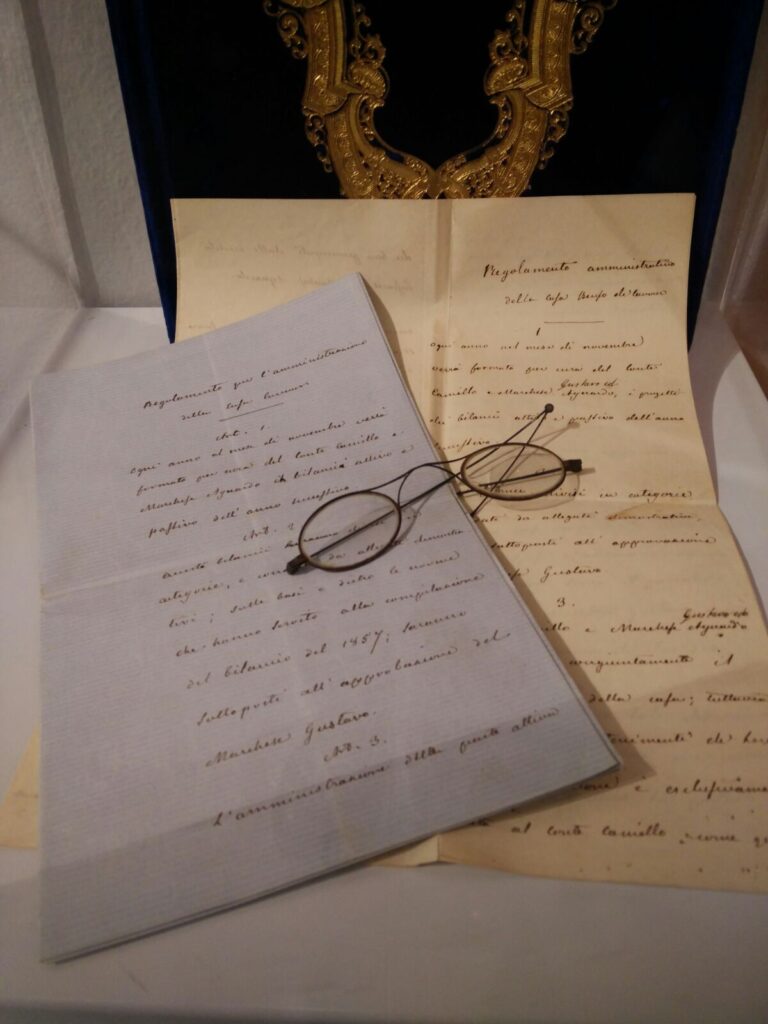 Regolamento per l'amministrazione
della casa Cavour
Art. 1
ogni anno al mese di novembre verrà
formato per cura del Conte Camillo e
Marchese Aynardo il bilancio attivo e
passivo dell'anno successivo
Art. 2
questi bilanci saranno
categorie, e da allegati dimostra
tivi; sulle basi e dietro le norme
che hanno servito alla compilazione
del bilancio del 1857; saranno
sottoposti all'approvazione del
Marchese Gustavo.
Art. 3.
L'amministrazione della parte attiva
Regolamento amministrativo
della casa Benso di Cavour
1
ogni anno nel mese di novembre
verrà formato per cura del Conte
Gustavo ed
Camillo e Marchese Aynardo, i progetti
dei bilanci attivo e passivo dell'anno
successivo
divisi in categorie
da allegati dimostrativi,
sottoposti all'approvazione
Gustavo
3.
Gustavo ed
e Marchese Aynardo
congiuntamente il
della casa; tuttavia
che
è esclusivamente
al conte Camillo, come